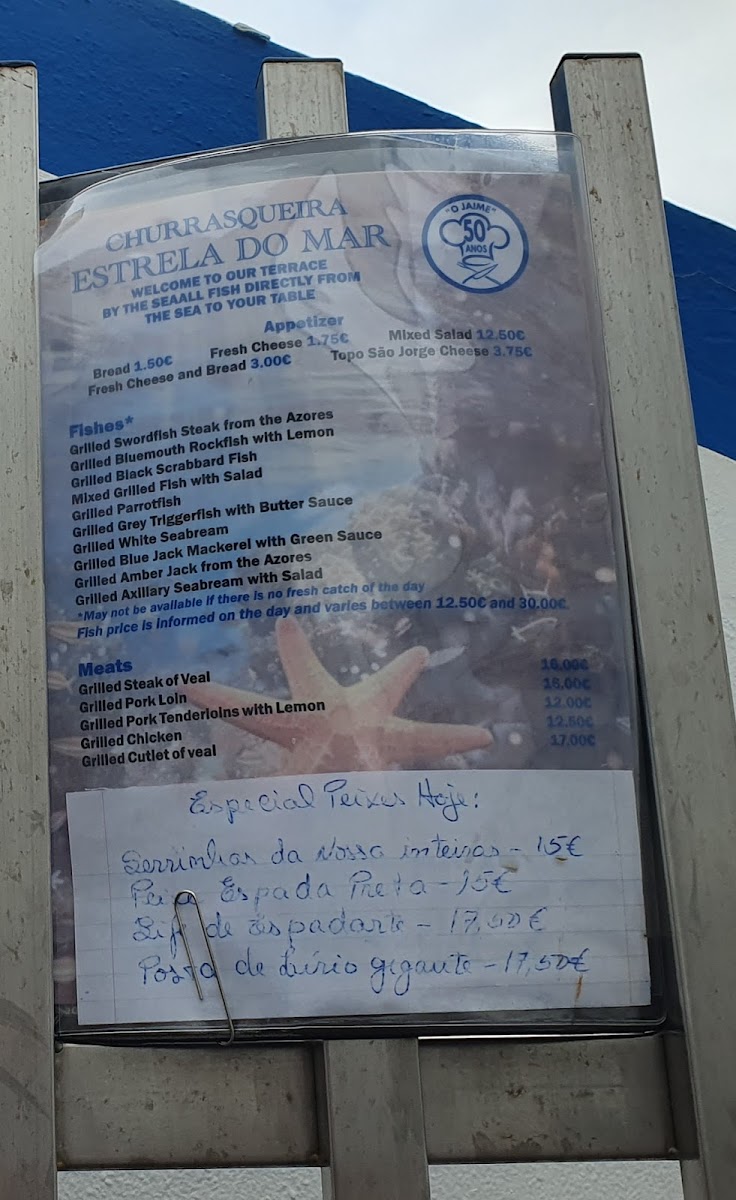 CHURRASQUEIRA
ESTRELA DO MAR
WELCOME TO OUR TERRACE
BY THE SEAALL FISH DIRECTLY FROM
THE SEA TO YOUR TABLE
"O JAIME"
50
ANOS
Appetizer
Bread 1.50€ Fresh Cheese 1.75€ Mixed Salad 12.50€
Fresh Cheese and Bread 3.00€ Topo São Jorge Cheese 3.75€
Fishes*
Grilled Swordfish Steak from the Azores
Grilled Bluemouth Rockfish with Lemon
Grilled Black Scrabbard Fish
Mixed Grilled Fish with Salad
Grilled Parrotfish
Grilled Grey Triggerfish with Butter Sauce
Grilled White Seabream
Grilled Blue Jack Mackerel with Green Sauce
Grilled Amber Jack from the Azores
Grilled Axillary Seabream with Salad
*May not be available if there is no fresh catch of the day
Fish price is informed on the day and varies between 12.50€ and 30.00€.
Meats
Grilled Steak of Veal 16.00€
Grilled Pork Loin 16.00€
Grilled Pork Tenderloins with Lemon 12.00€
Grilled Chicken 12.50€
Grilled Cutlet of veal 17.00€
Especial Peixes Hoje:
da Nossa inteiras - 15€
Espada Preta - 15€
de Espadarte - 17,50€
Posta de Lírio gigante - 17,50€